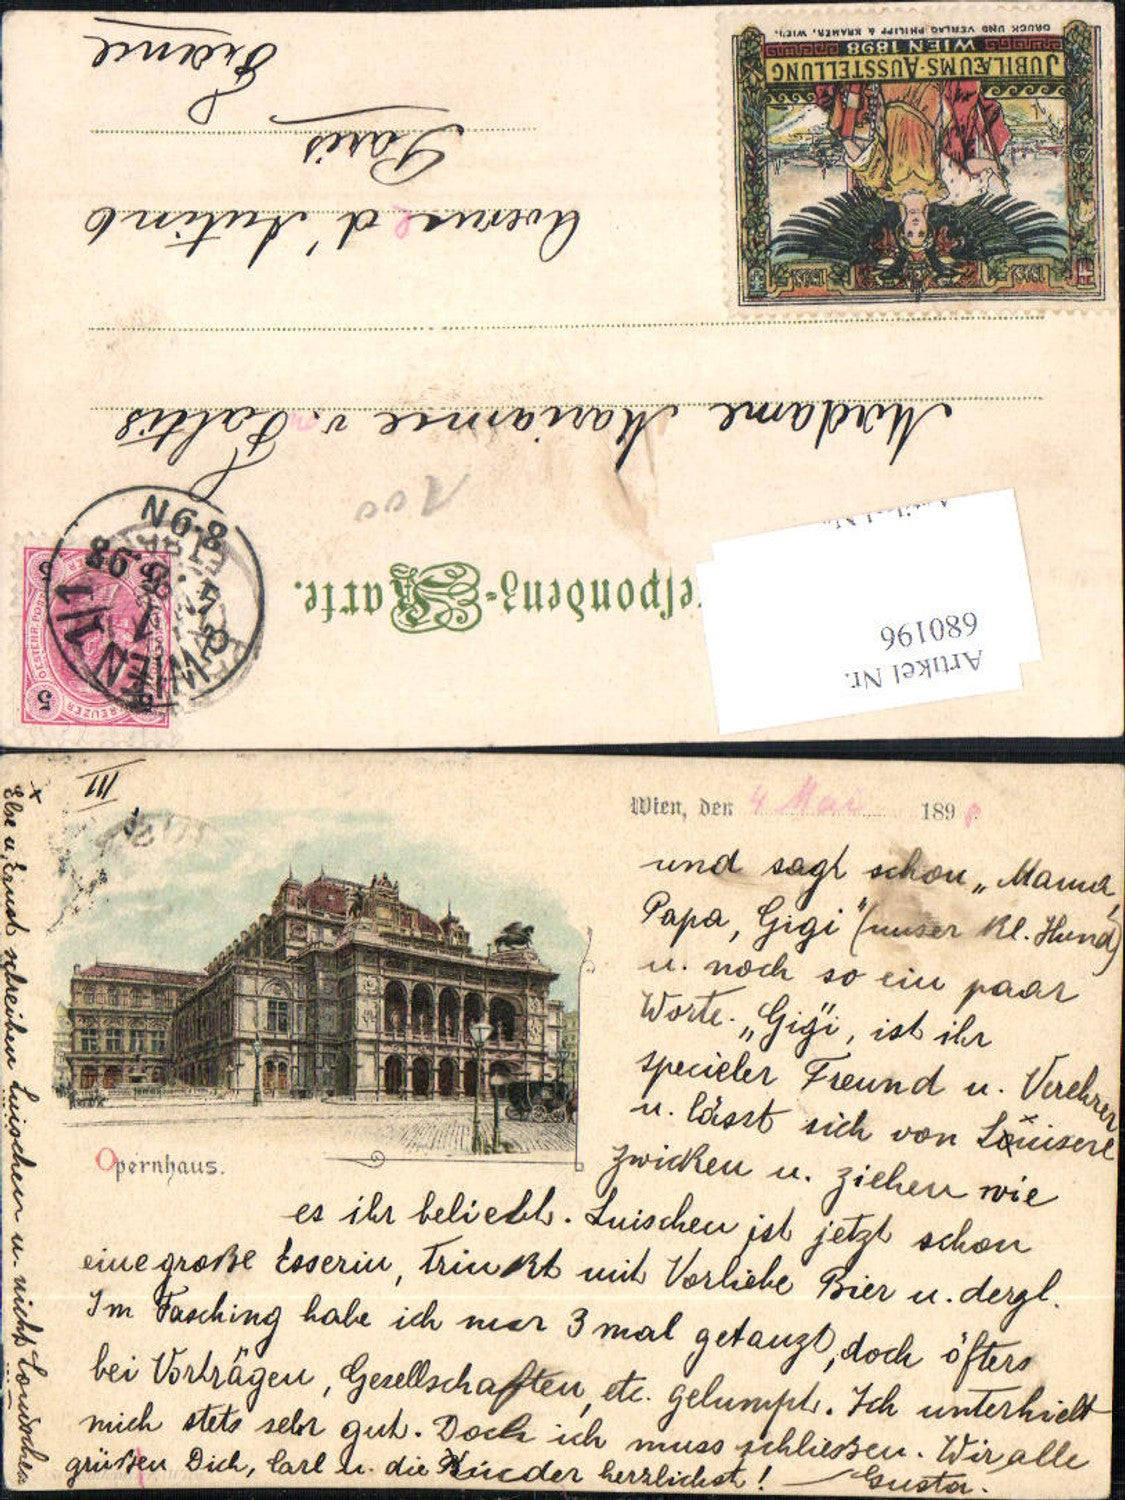 France
Paris
Avenue d'Antin 6
Madame Marianne v. Faltis
Correspondenz-Karte.
100
JUBILÆUMS-AUSSTELLUNG
WIEN 1898
DRUCK UND VERLAG PHILIPP & KRAMER, WIEN.
Artikel Nr.
680196
WIEN 1/1
4.5.98
8-9N
5 KREUZER 5
III
Wien, den 4 Mai 1898
und sagt schon „Mama,
Papa, Gigi" (unser Kl. Hund)
u. noch so ein paar
Worte. „Gigi", ist ihr
specieler Freund u. Verehrer
u. lässt sich von Louisere
zwicken u. ziehen wie
es ihr beliebt. Luischen ist jetzt schon
eine große Esserin, trinkt mit Vorliebe Bier u. dergl.
Im Fasching habe ich nur 3 mal getanzt, doch öfters
bei Vorträgen, Gesellschaften, etc. gelumpt. Ich unterhielt
mich stets sehr gut. Doch ich muss schließen. Wir alle
grüßen Dich, Carl u. die Kinder herzlichst! Gusta.
Opernhaus.
x Else u. Ernst schreiben Luischen u. nicht Louischen